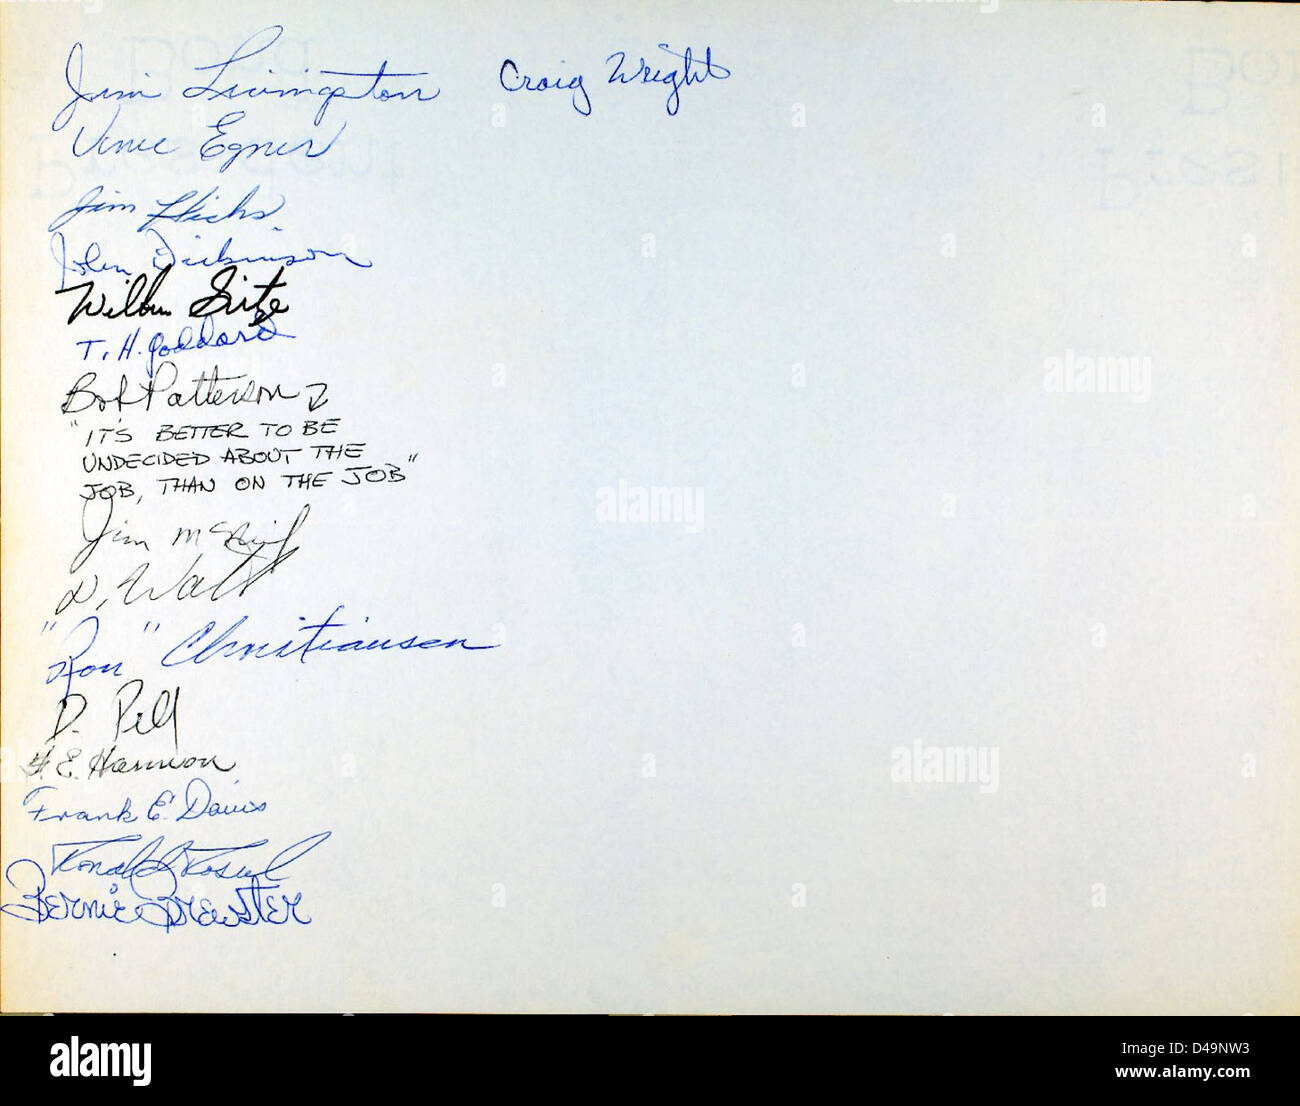 Jim Livingston Craig Wright
Vince Egner
Jim Hicks
John Dickinson
Wilbur
T. H. Goddard
Bob Patterson
"IT'S BETTER TO BE
UNDECIDED ABOUT THE
JOB, THAN ON THE JOB"
Jim
D. Watt
"Ron" Christiansen
D. Pell
E. Harmon
Frank E. Davis
Ronald
Bernie Brewster
alamy
alamy
alamy
alamy
alamy
Image ID: D49NW3
www.alamy.com